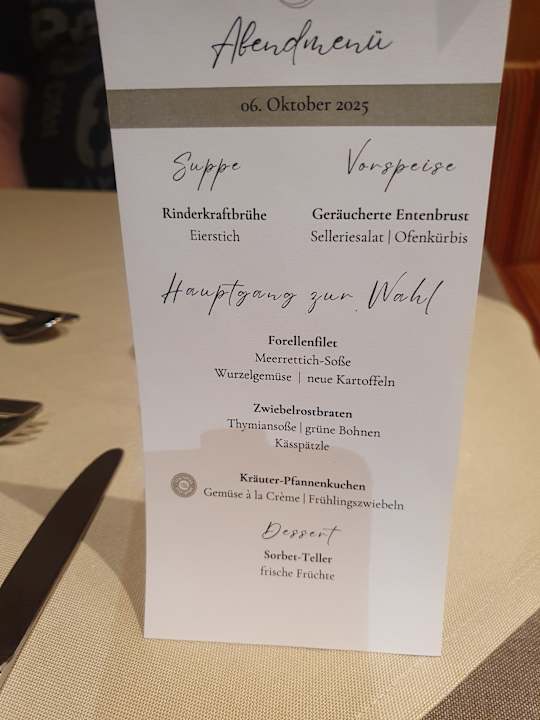 Abendmenü
06. Oktober 2025
Suppe
Rinderkraftbrühe
Eierstich
Vorspeise
Geräucherte Entenbrust
Selleriesalat | Ofenkürbis
Hauptgang zur Wahl
Forellenfilet
Meerrettich-Soße
Wurzelgemüse | neue Kartoffeln
Zwiebelrostbraten
Thymiansoße | grüne Bohnen
Kässpätzle
Kräuter-Pfannenkuchen
Gemüse à la Crème | Frühlingszwiebeln
Dessert
Sorbet-Teller
frische Früchte